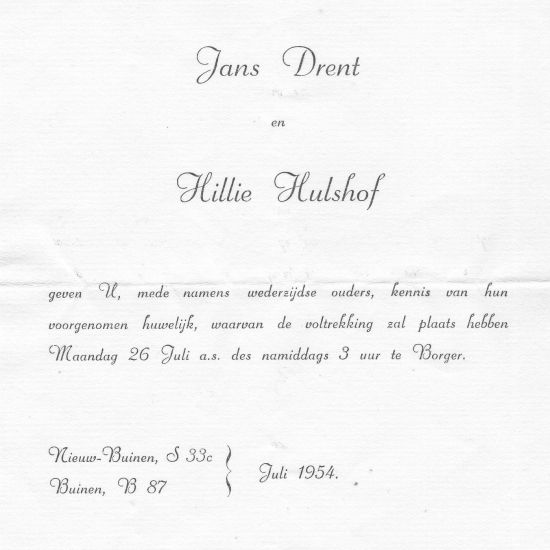 Jans Drent
en
Hillie Hulshof
geven U, mede namens wederzijdse ouders, kennis van hun
voorgenomen huwelijk, waarvan de voltrekking zal plaats hebben
Maandag 26 Juli a.s. des namiddags 3 uur te Borger.
Nieuw-Buinen, S 33c
Buinen, B 87
Juli 1954.